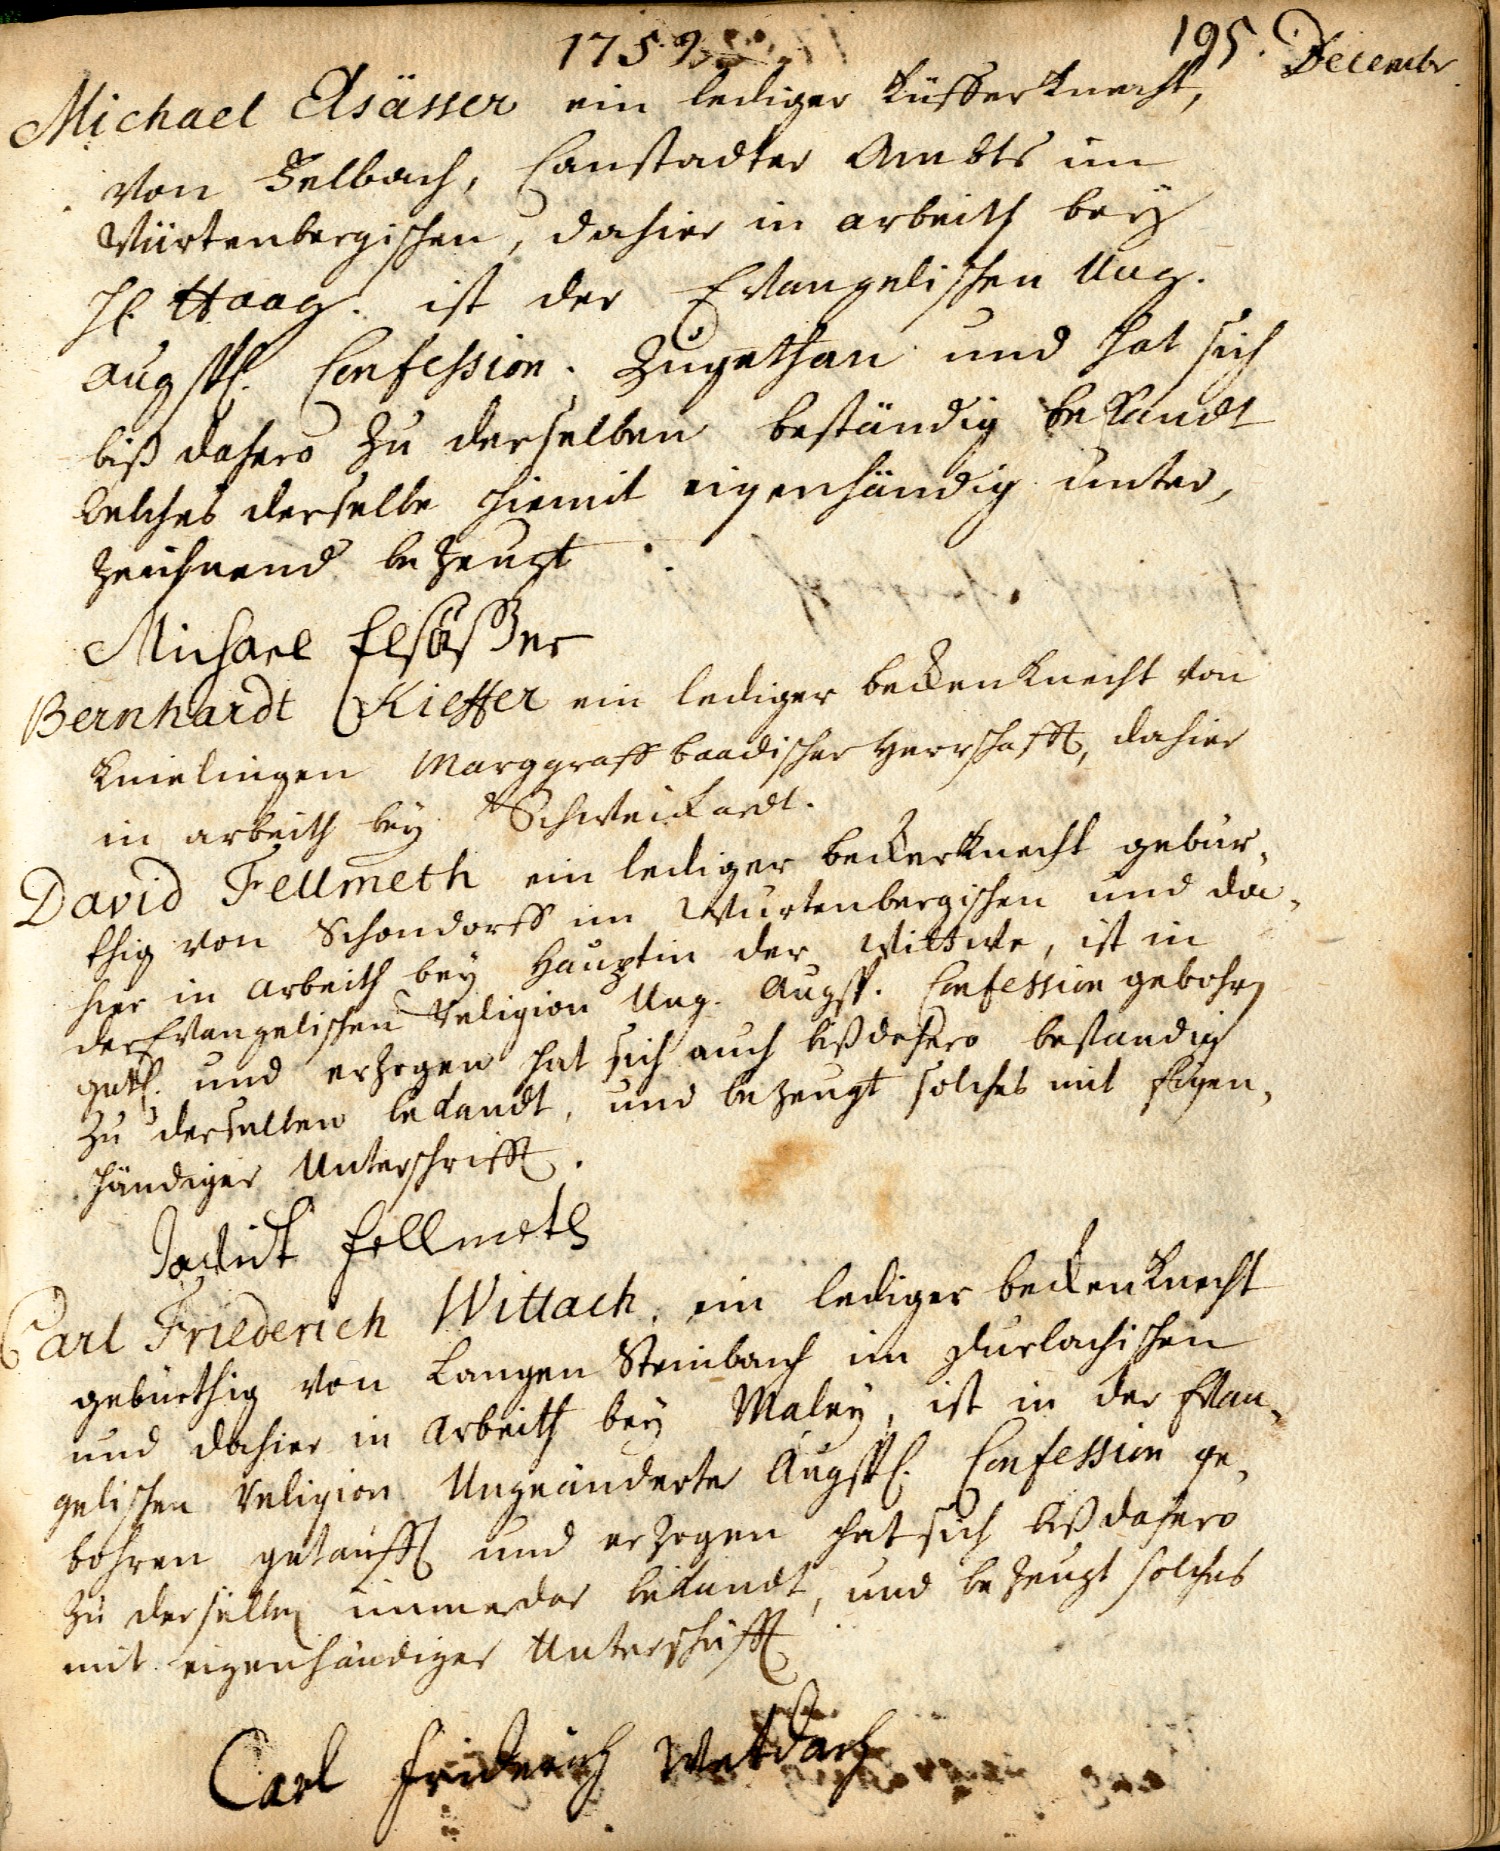 1759
195.
Decembr
Michael Elsässer ein lediger Küfferknecht,
von Felbach, Canstadter Ambts im
Würtenbergischen, dahier in arbeith bey
H. Haag. ist der Evangelischen Ung.
augsp. Confession. zugethan und hat sich
biß dahero zu derselben beständig bekandt
welches derselbe hiemit eigenhändig unter,
zeichnend bezeugt.
Michael Elsäßer
Bernhardt Kieffer ein lediger beckenknecht von
Knielingen Marggraff baadischer Herrschafft, dahier
in arbeith bey Schweickardt.
David Fellmeth ein lediger beckerknecht gebür,
thig von Schondorff im Würtenbergischen und da,
hier in arbeith bey Hauptin der Wittwe, ist in
der Evangelischen Religion Ung. Augsp. Confession gebohren
get. und erzogen hat sich auch bißdahero beständig
zu derselben bekandt, und bezeugt solches mit Eigen,
händiger Unterschrifft.
Fellmeth
Carl Friederich Wittach, ein lediger beckenknecht
gebürthig von Langen Steinbach im Durlachischen
und dahier in arbeith bey Maley, ist in der Evan,
gelischen Religion Ungeänderter Augsp. Confession ge,
bohren getaufft und erzogen hat sich bißdahero
zu derselben immerdar bekandt, und bezeugt solches
mit eigenhändiger Unterschrifft
Carl Friderich Wetdach